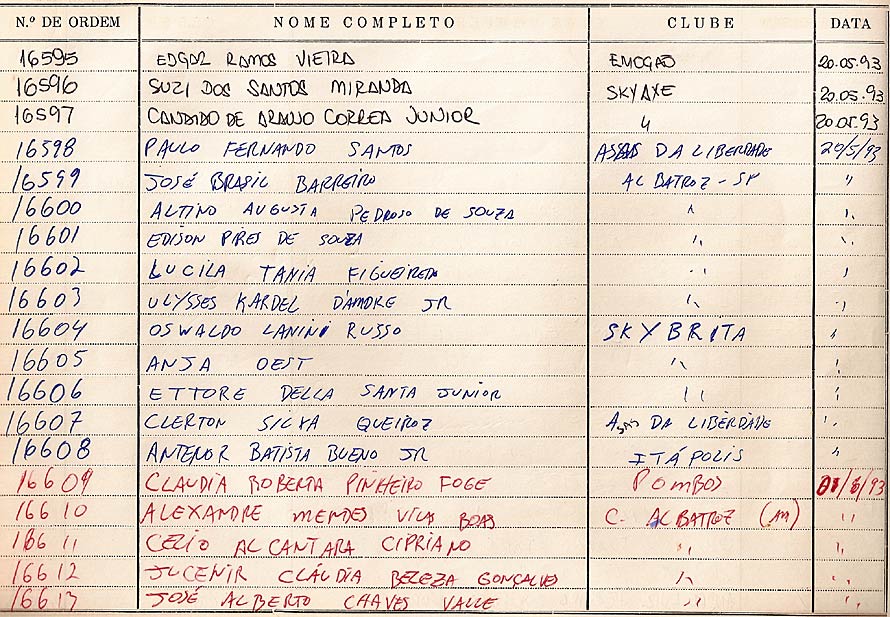 N.º DE ORDEM NOME COMPLETO CLUBE DATA
16595 EDGAR RAMOS VIEIRA EMOÇÃO 20.05.93
16596 SUZI DOS SANTOS MIRANDA SKYAXE 20.05.93
16597 CANDIDO DE ARAUJO CORREA JUNIOR " 20.05.93
16598 PAULO FERNANDO SANTOS ASAS DA LIBERDADE 20/5/93
16599 JOSÉ BRASIL BARREIRO ALBATROZ - SP "
16600 ALTINO AUGUSTA PEDROSO DE SOUZA " "
16601 EDISON PIRES DE SOUZA " "
16602 LUCILA TANIA FIGUEIREDO " "
16603 ULYSSES KARDEL D'AMORE JR " "
16604 OSWALDO LANINI RUSSO SKYBRITA "
16605 ANJA OEST " "
16606 ETTORE DELLA SANTA JUNIOR " "
16607 CLERTON SILVA QUEIROZ ASAS DA LIBERDADE "
16608 ANTENOR BATISTA BUENO JR ITÁPOLIS "
16609 CLAUDIA ROBERTA PINHEIRO FOGE POMBOS /6/93
16610 ALEXANDRE MENDES VILAS BOAS C. ALBATROZ "
16611 CELIO ALCANTARA CIPRIANO " "
16612 JUCENIR CLÁUDIA BELEZA GONÇALVES " "
16613 JOSÉ ALBERTO CHAVES VALLE " "